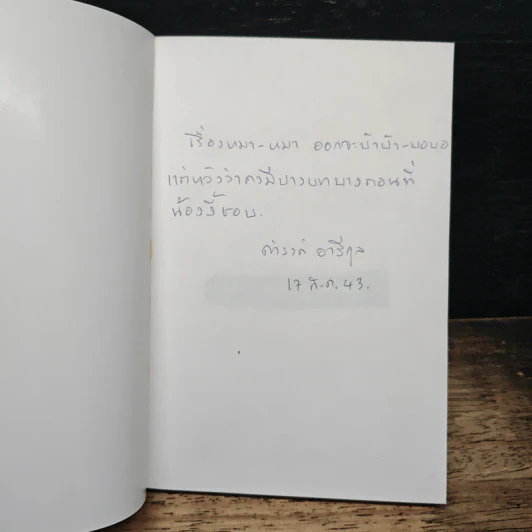 เรื่องหมา-หมา ออกจะบ้าบ้า-บอบอ
แต่หวังว่าคงมีบางบทบางตอนที่
น้องงี้ชอบ.
ดำรงค์ อารีกุล
17 ธ.ค. 43.